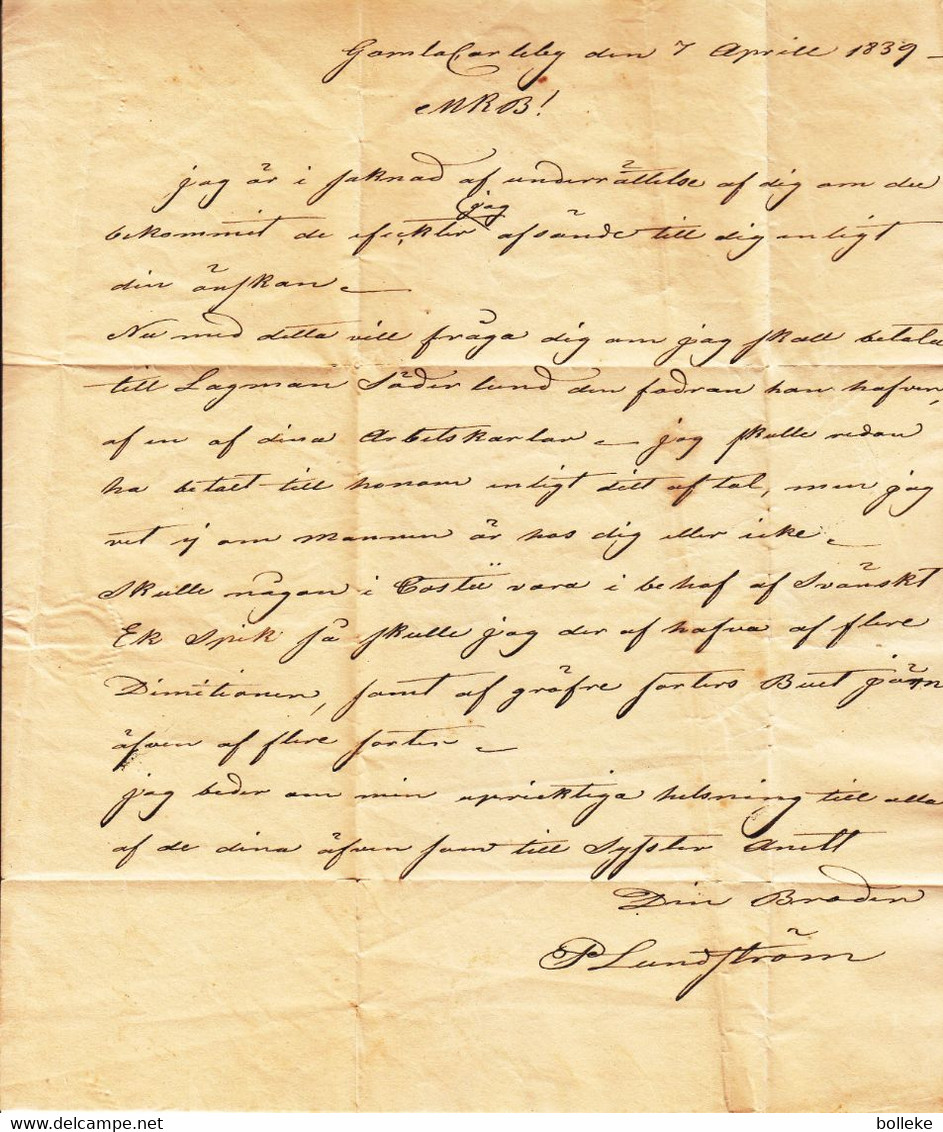 GamlaCarleby den 7 Aprill 1839 –
MRB!
jag är i saknad af underrättelse af dig om du
jag
bekommit de efeckter afsände till dig enligt
din önskan –
Nu med detta vill fråga dig om jag skall betala
till Lagman Söderlund den fodran han hafver
af en af dina Arbetskarlar – jag skulle redan
ha betalt till honom enligt ditt aftal, men jag
vet ej om mannen är hos dig eller icke –
Skulle någon i Costö vara i behof af Svänskt
Ek Spik så skulle jag der af hafva af flere
Dimitioner, samt af gröfre sorters Bult järn
äfven af flere sorter –
jag beder om min upricktiga helsning till alla
af de dina äfven som till Syster Anett
Din Broder
P Lundström
bolleke